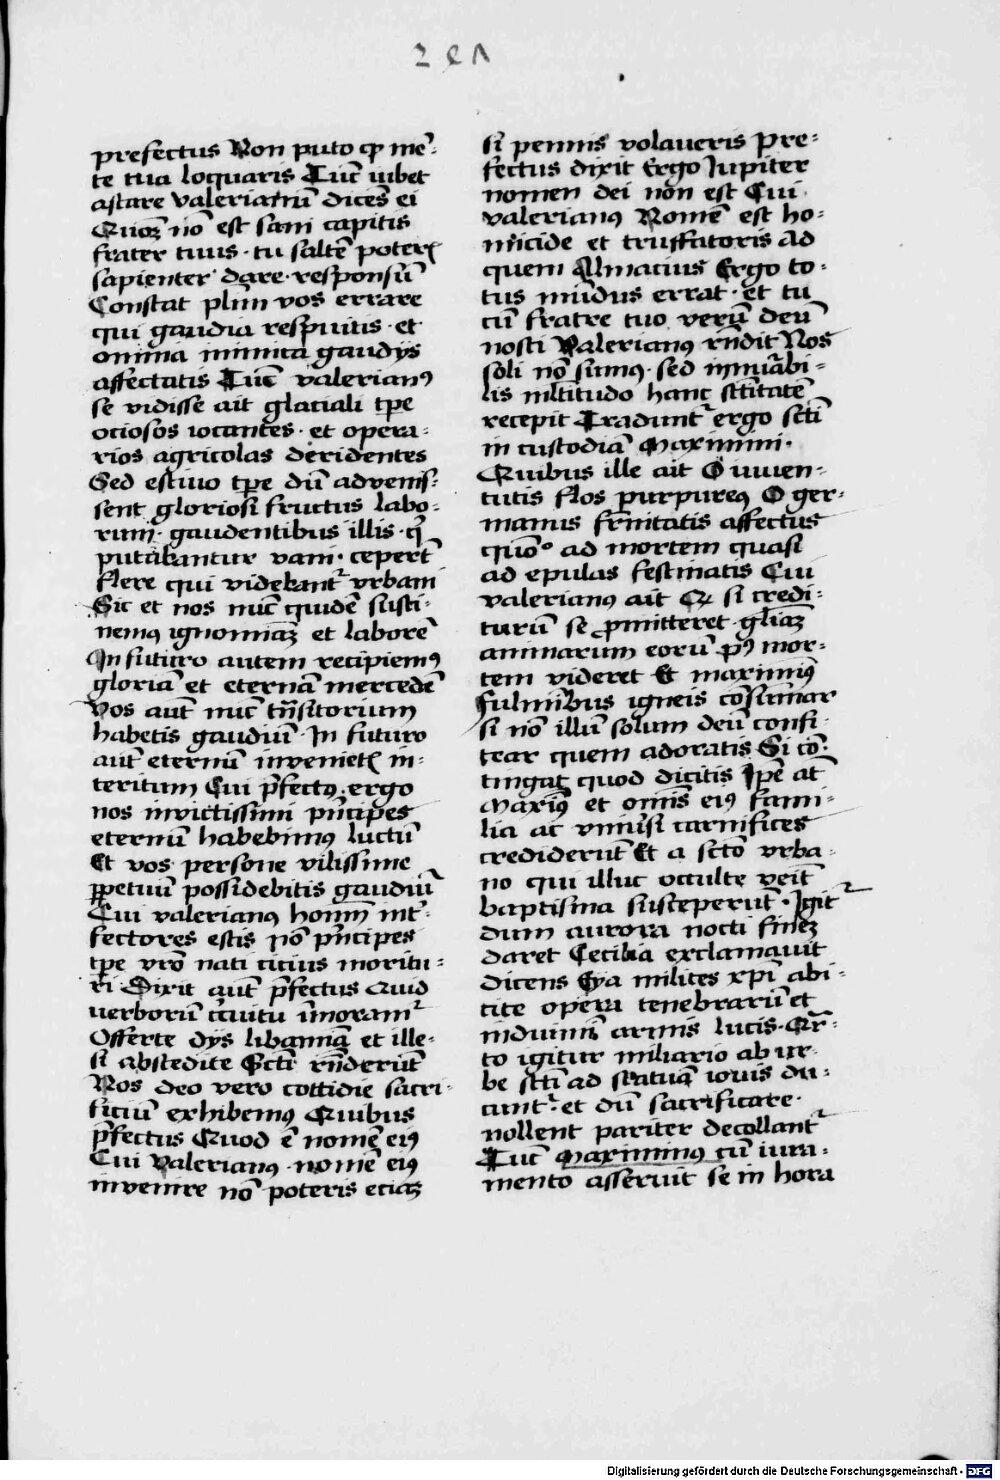 2 e Λ
prefectus Non puto qꝫ me᷑⸗
te tua loquaris Tūc iubet
astare valerianū dicēs ei
Quoꝫ nō est sani capitis
frater tuus · tu saltē poterꝭ
sapienter dare · responsū
Constat plim vos errare
qui gaudia respuitis · et
omnia inimica gaudijs
affectatis Tūc valerianꝰ
se vidisse ait glaciali tꝑe
ociosos iocantes · et opera⸗
rios agricolas deridentes
Sed estiuo tꝑe dū advenis⸗
sent gloriosi fructus labo⸗
rum · gaudentibus illis · qͥ
putabantur vani · ceperūt
flere qui videbantᷣ vrbani
Sic et nos nūc quidē susti⸗
nemꝰ ignominiaꝫ et laborē
In futuro autem recipiemꝰ
gloriā et eternā mercedē
Vos aūt nūc trāsitorium
habetis gaudiū · In futuro
aūt eternū invenietꝭ in⸗
teritum Cui p̄fectꝰ · ergo
nos invictissimi p̄ncipes
eternū habebimꝰ luctū
Et vos persone vilissime
ꝑpetuū possidebitis gaudiū
Cui valerianꝰ homīū int᷑⸗
fectores estis nō p̄ncipes
tꝑe vrō nati citius moritu⸗
ri Dixit aūt p̄fectus Quid
verborū circuitu īmoramᷣ
Offerte dijs libamīa et ille⸗
si abscedite Sctī rn̄derūt
Nos deo vero cottidie sacri⸗
ficiū exhibemꝰ Quibus
p̄fectus Quod ē nomē eiꝰ
Cui Valerianꝰ · nomē eiꝰ
invenire nō poteris eciaꝫ
si pennis volaueris Pre⸗
fectus dixit Ergo Jupiter
nomen dei non est Cui
valerianꝰ Nomē est ho⸗
micide et truffatoris Ad
quem Almacius Ergo to⸗
tus mūdus errat · et tu
cū fratre tuo verū deū
nosti Valerianꝰ rn̄dit Nos
soli nō sumꝰ · sed innūabi⸗
lis mltitudo hanc sctītatē
recepit Traduntᷣ ergo sctī
in custodiā Maximini ·
Quibus ille ait O iuuen⸗
tutis flos purpureꝰ O ger⸗
manus fr̄nitatis affectus
quōº ad mortem quasi
ad epulas festinatis Cui
valerianꝰ ait Qꝫ si credi⸗
turū se ꝓmitteret · gl̄iaꝫ
animarum eorū pꝰ mor⸗
tem videret Et maximīꝰ
fulminibus igneis cōsumar
si nō illū solum deū confi⸗
tear quem adoratis Si cō⸗
tingat quod dicitis Ipē at̄
Maxīꝰ et omīs eiꝰ fami⸗
lia ac vniūsi carnifices
crediderūt Et a sctō vrba⸗
no qui illuc occulte veīt
baptisma susceperūt · Igitᷣ
dum aurora nocti fineꝫ
daret Cecilia exclamauit
dicens Eya milites xp̄i abi⸗
cite opera tenebrarū et
induimī armis lucis · Qr᷑⸗
to igitur miliario ab ur⸗
be sctī ad statuā iouis du⸗
cuntᷣ · et dū sacrificare ·
nollent pariter decollantᷣ
Tūc Maximinꝰ cū iura⸗
mento asseruit se in hora
Digitalisierung gefördert durch die Deutsche Forschungsgemeinschaft - DFG